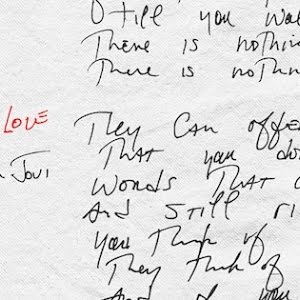 Still you wa
There is nothin
There is nothin
Love
They can offe
That you do
Jovi
words that c
And still ri
You think of
They think of
And you